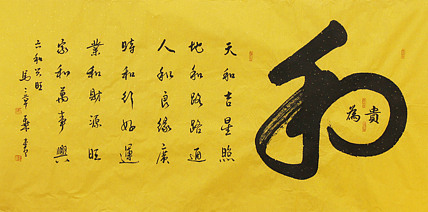 和
為貴
天和吉星照
地和路路通
人和良緣廣
時和行好運
業和財源旺
家和萬事興
六和共旺